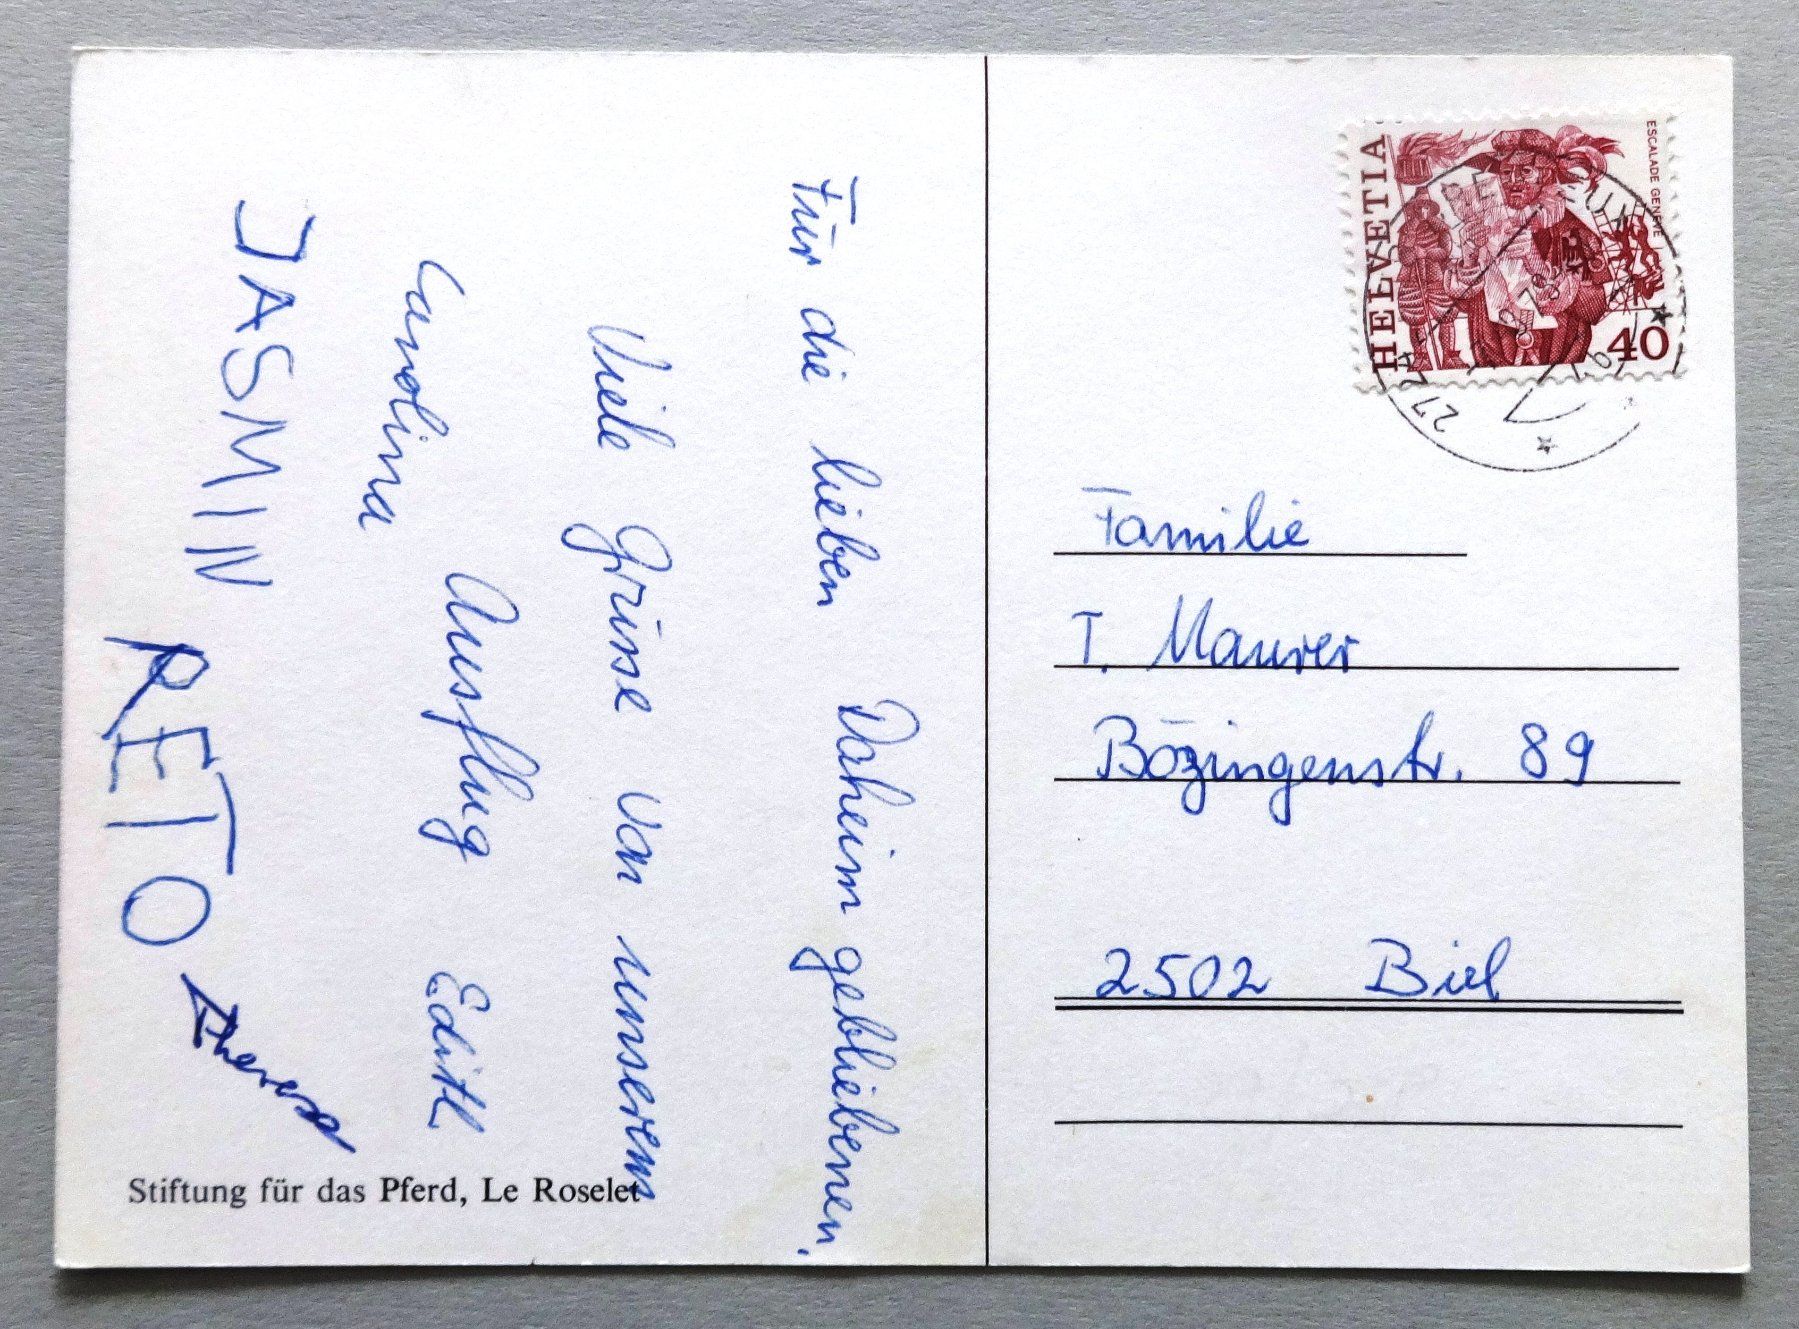 Für die lieben Daheimgebliebenen,
Viele Grüsse von unserem
Ausflug Edith
Carolina
JASMIN
RETO
Therese
Stiftung für das Pferd, Le Roselet
HELVETIA
ESCALADE GENÈVE
40
Familie
T. Maurer
Bözingenstr. 89
2502 Biel